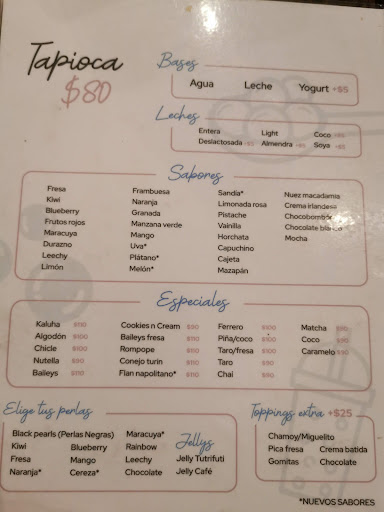 Tapioca
$80
Bases
Agua Leche Yogurt +$5
Leches
Entera Light Coco +$5
Deslactosada +$5 Almendra +$5 Soya +$5
Sabores
Fresa Frambuesa Sandía* Nuez macadamia
Kiwi Naranja Limonada rosa Crema irlandesa
Blueberry Granada Pistache Chocobombón
Frutos rojos Manzana verde Vainilla Chocolate blanco
Maracuya Mango Horchata Mocha
Durazno Uva* Capuchino
Leechy Plátano* Cajeta
Limón Melón* Mazapán
Especiales
Kaluha $110 Cookies n Cream $90 Ferrero $100 Matcha $90
Algodón $100 Baileys fresa $110 Piña/coco $100 Coco $90
Chicle $100 Rompope $110 Taro/fresa $100 Caramelo $90
Nutella $90 Conejo turin $110 Taro $90
Baileys $110 Flan napolitano* $110 Chai $90
Elige tus perlas
Black pearls (Perlas Negras) Maracuya*
Kiwi Blueberry Rainbow
Fresa Mango Leechy
Naranja* Cereza* Chocolate
Jellys
Jelly Tutrifuti
Jelly Café
Toppings extra +$25
Chamoy/Miguelito
Pica fresa Crema batida
Gomitas Chocolate
*NUEVOS SABORES